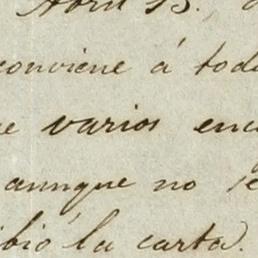 Abril 13.
conviene á tod
e varios enc
aunque no se
ibió la carta.